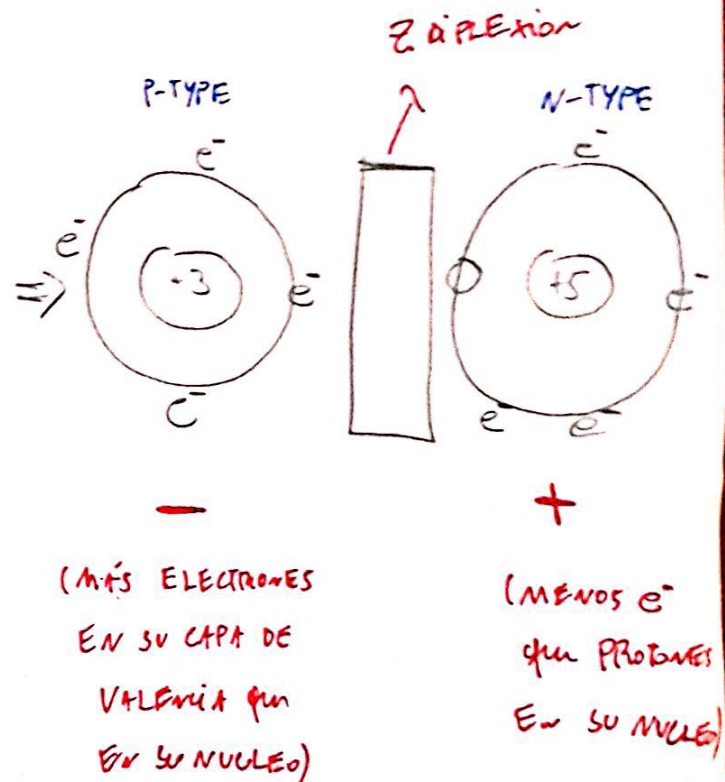 Z DIPLEXION
P-TYPE
N-TYPE
e⁻
e⁻
e⁻
e⁻
+3
=>
e⁻
e⁻
e⁻
e⁻
+5
−
+
(MÁS ELECTRONES
EN SU CAPA DE
VALENCIA qun
EN SU NUCLEO)
(MENOS e⁻
qun PROTONES
EN SU NUCLEO)